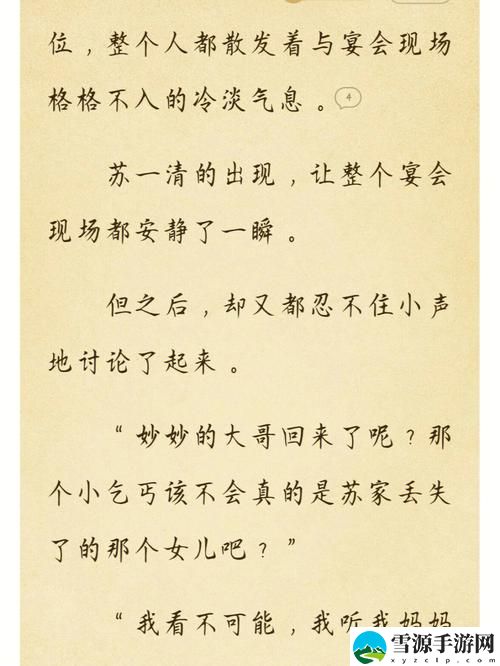 位，整个人都散发着与宴会现场
格格不入的冷淡气息。 4
苏一清的出现，让整个宴会
现场都安静了一瞬。
但之后，却又都忍不住小声
地讨论了起来。
“妙妙的大哥回来了呢？那
个小乞丐该不会真的是苏家丢失
了的那个女儿吧？”
“我看不可能，我听我妈妈
雪源手游网
www.xyzclp.com